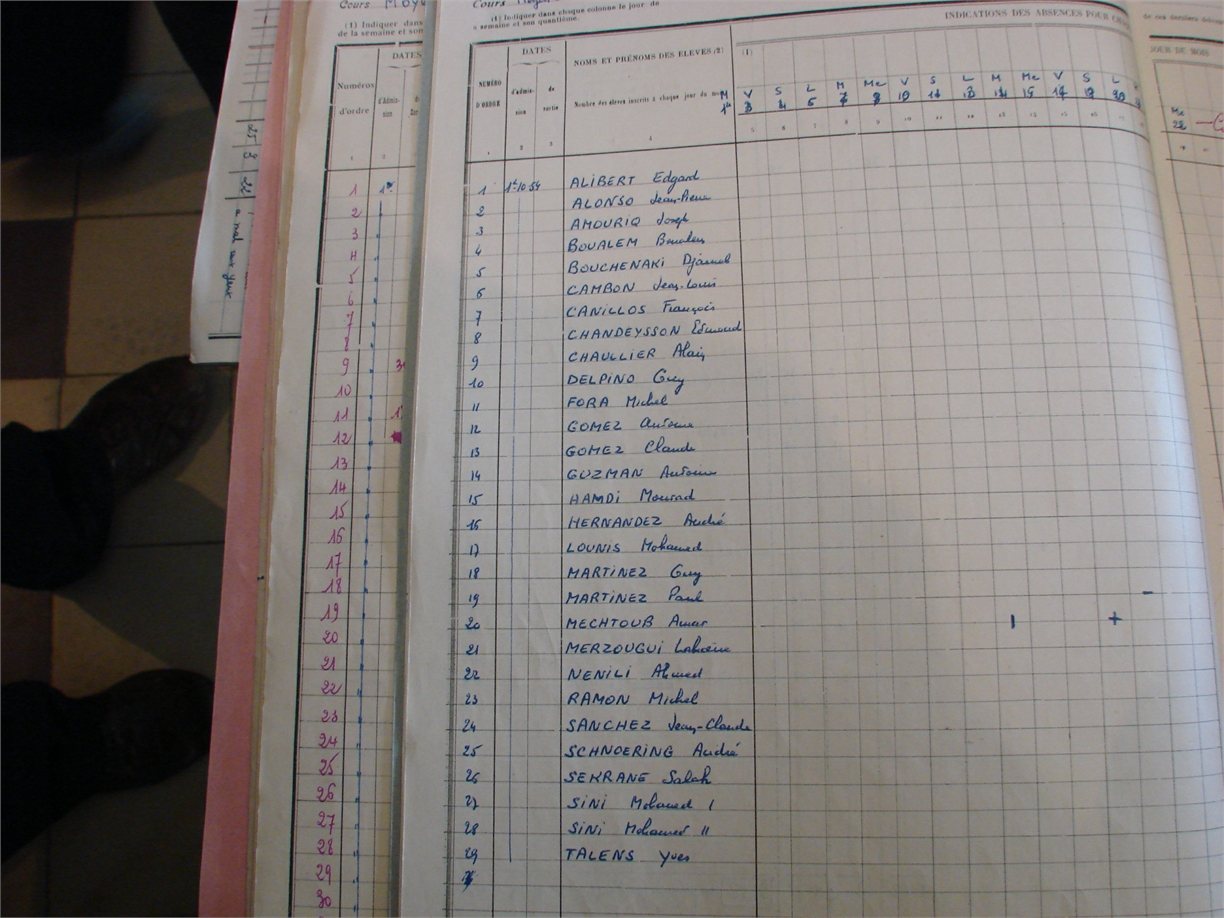 Cours Moy
(1) Indiquer dans
de la semaine et son
DATES
Numéros
d'ordre
d'admis-
sion
1 2
1
2
3
4
5
6
7
8
9
10
11
12
13
14
15
16
17
18
19
20
21
22
23
24
25
26
27
28
29
30
Cours Moyen
(1) Indiquer dans chaque colonne le jour de
semaine et son quantième.
INDICATIONS DES ABSENCES POUR
DATES
NUMÉRO
D'ORDRE
d'admis-
sion
de
sortie
NOMS ET PRÉNOMS DES ÉLÈVES (2)
Nombre des élèves inscrits à chaque jour du mois
(1)
M V S L M Me V S L M Me V S L
1 2 3 4 5 6 7 8 9 10 11 12 13 14 15 16
1 1er.10.54 ALIBERT Edgard
2 ALONSO Jean-Pierre
3 AMOURIQ Joseph
4 BOUALEM Boualem
5 BOUCHENAKI Djamel
6 CAMBON Jean-Louis
7 CANILLOS François
8 CHANDEYSSON Edmond
9 CHAULLIER Alain
10 DELPINO Guy
11 FORA Michel
12 GOMEZ Antoine
13 GOMEZ Claude
14 GUZMAN Antoine
15 HAMDI Mourad
16 HERNANDEZ André
17 LOUNIS Mohamed
18 MARTINEZ Guy
19 MARTINEZ Paul
20 MECHTOUB Amar
21 MERZOUGUI
22 NENILI Ahmed
23 RAMON Michel
24 SANCHEZ Jean-Claude
25 SCHNOERING André
26 SEKRANE Salah
27 SINI Mohamed I
28 SINI Mohamed II
29 TALENS Yves
de ces derniers
JOUR DE MOIS
Me
22
a mal aux yeux